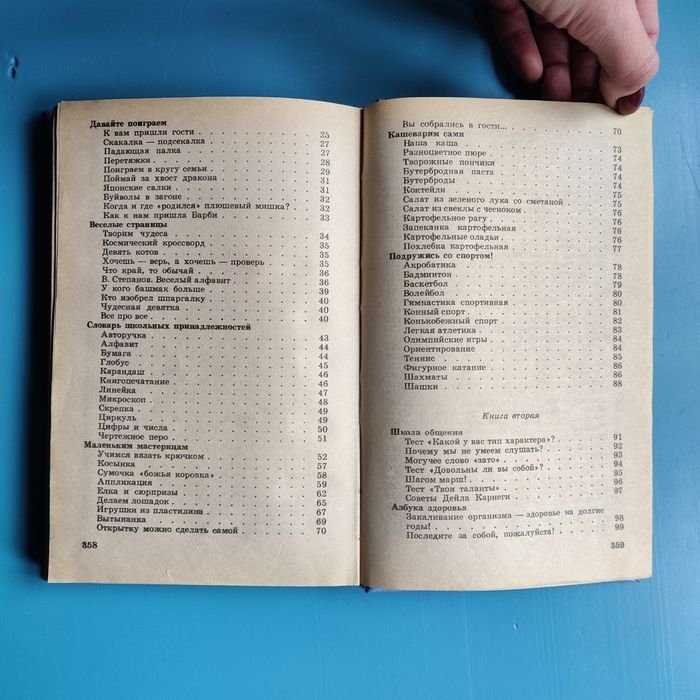 Давайте поиграем
К вам пришли гости . . . . . . . . . . 25
Скакалка — подсекалка . . . . . . . . . . 27
Падающая палка . . . . . . . . . . 27
Перетяжки . . . . . . . . . . 28
Поиграем в кругу семьи . . . . . . . . . . 29
Поймай за хвост дракона . . . . . . . . . . 31
Японские салки . . . . . . . . . . 31
Буйволы в загоне . . . . . . . . . . 32
Когда и где «родился» плюшевый мишка? . . . . 32
Как к нам пришла Барби . . . . . . . . . . 33
Веселые страницы
Творим чудеса . . . . . . . . . . 34
Космический кроссворд . . . . . . . . . . 35
Девять котов . . . . . . . . . . 35
Хочешь — верь, а хочешь — проверь . . . . . . 35
Что край, то обычай . . . . . . . . . . 36
В. Степанов. Веселый алфавит . . . . . . . . 36
У кого башмак больше . . . . . . . . . . 39
Кто изобрел шпаргалку . . . . . . . . . . 40
Чудесная девятка . . . . . . . . . . 40
Все про все . . . . . . . . . . 40
Словарь школьных принадлежностей
Авторучка . . . . . . . . . . 43
Алфавит . . . . . . . . . . 44
Бумага . . . . . . . . . . 44
Глобус . . . . . . . . . . 45
Карандаш . . . . . . . . . . 46
Книгопечатание . . . . . . . . . . 46
Линейка . . . . . . . . . . 47
Микроскоп . . . . . . . . . . 48
Скрепка . . . . . . . . . . 49
Циркуль . . . . . . . . . . 49
Цифры и числа . . . . . . . . . . 50
Чертежное перо . . . . . . . . . . 51
Маленьким мастерицам
Учимся вязать крючком . . . . . . . . . . 52
Косынка . . . . . . . . . . 57
Сумочка «божья коровка» . . . . . . . . . . 58
Аппликация . . . . . . . . . . 59
Елка и сюрпризы . . . . . . . . . . 62
Делаем лошадок . . . . . . . . . . 65
Игрушки из пластидина . . . . . . . . . . 67
Вытынанка . . . . . . . . . . 69
Открытку можно сделать самой . . . . . . . . 70
358
Вы собрались в гости... . . . . . . . . . . 70
Кашеварим сами
Наша каша
Разноцветное пюре . . . . . . . . . . 73
Творожные пончики . . . . . . . . . . 74
Бутербродная паста . . . . . . . . . . 74
Бутерброды . . . . . . . . . . 74
Коктейли . . . . . . . . . . 74
Салат из зеленого лука со сметаной . . . . . . 75
Салат из свеклы с чесноком . . . . . . . . 75
Картофельное рагу . . . . . . . . . . 76
Запеканка картофельная . . . . . . . . . . 76
Картофельные оладьи . . . . . . . . . . 76
Похлебка картофельная . . . . . . . . . . 77
Подружись со спортом!
Акробатика . . . . . . . . . . 78
Бадминтон . . . . . . . . . . 78
Баскетбол . . . . . . . . . . 79
Волейбол . . . . . . . . . . 80
Гимнастика спортивная . . . . . . . . . . 80
Конный спорт . . . . . . . . . . 81
Конькобежный спорт . . . . . . . . . . 82
Легкая атлетика . . . . . . . . . . 83
Олимпийские игры . . . . . . . . . . 84
Ориентирование . . . . . . . . . . 84
Теннис . . . . . . . . . . 85
Фигурное катание . . . . . . . . . . 86
Шахматы . . . . . . . . . . 86
Шашки . . . . . . . . . . 88
Книга вторая
Школа общения
Тест «Какой у вас тип характера»? . . . . . . 91
Почему мы не умеем слушать? . . . . . . . . 92
Могучее слово «зато» . . . . . . . . . . 93
Тест «Довольны ли вы собой»? . . . . . . . . 94
Шагом марш! . . . . . . . . . . 95
Тест «Твои таланты» . . . . . . . . . . 96
Советы Дейла Карнеги . . . . . . . . . . 97
Азбука здоровья
Закаливание организма — здоровье на долгие
годы! . . . . . . . . . . 98
Последите за собой, пожалуйста! . . . . . . 99
359